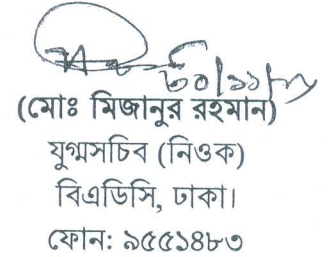 (মোঃ মিজানুর রহমান)
যুগ্মসচিব (নিওক)
বিএডিসি, ঢাকা।
ফোন: ৯৫৫১৪৮৩